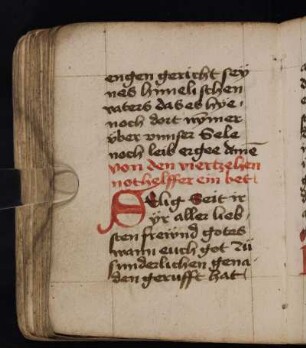 engen gericht seÿ
nes himelischen
vaters das es hye
noch dort nÿmer
ÿber vnnser Sele
noch leib ergee amē
von den viertzehen
nothelffer ein bet
Selig Seit ir
ÿr aller lieb
sten freẅnd gotes
wann euch got zü
sunderlichen gena
den gerufft hat